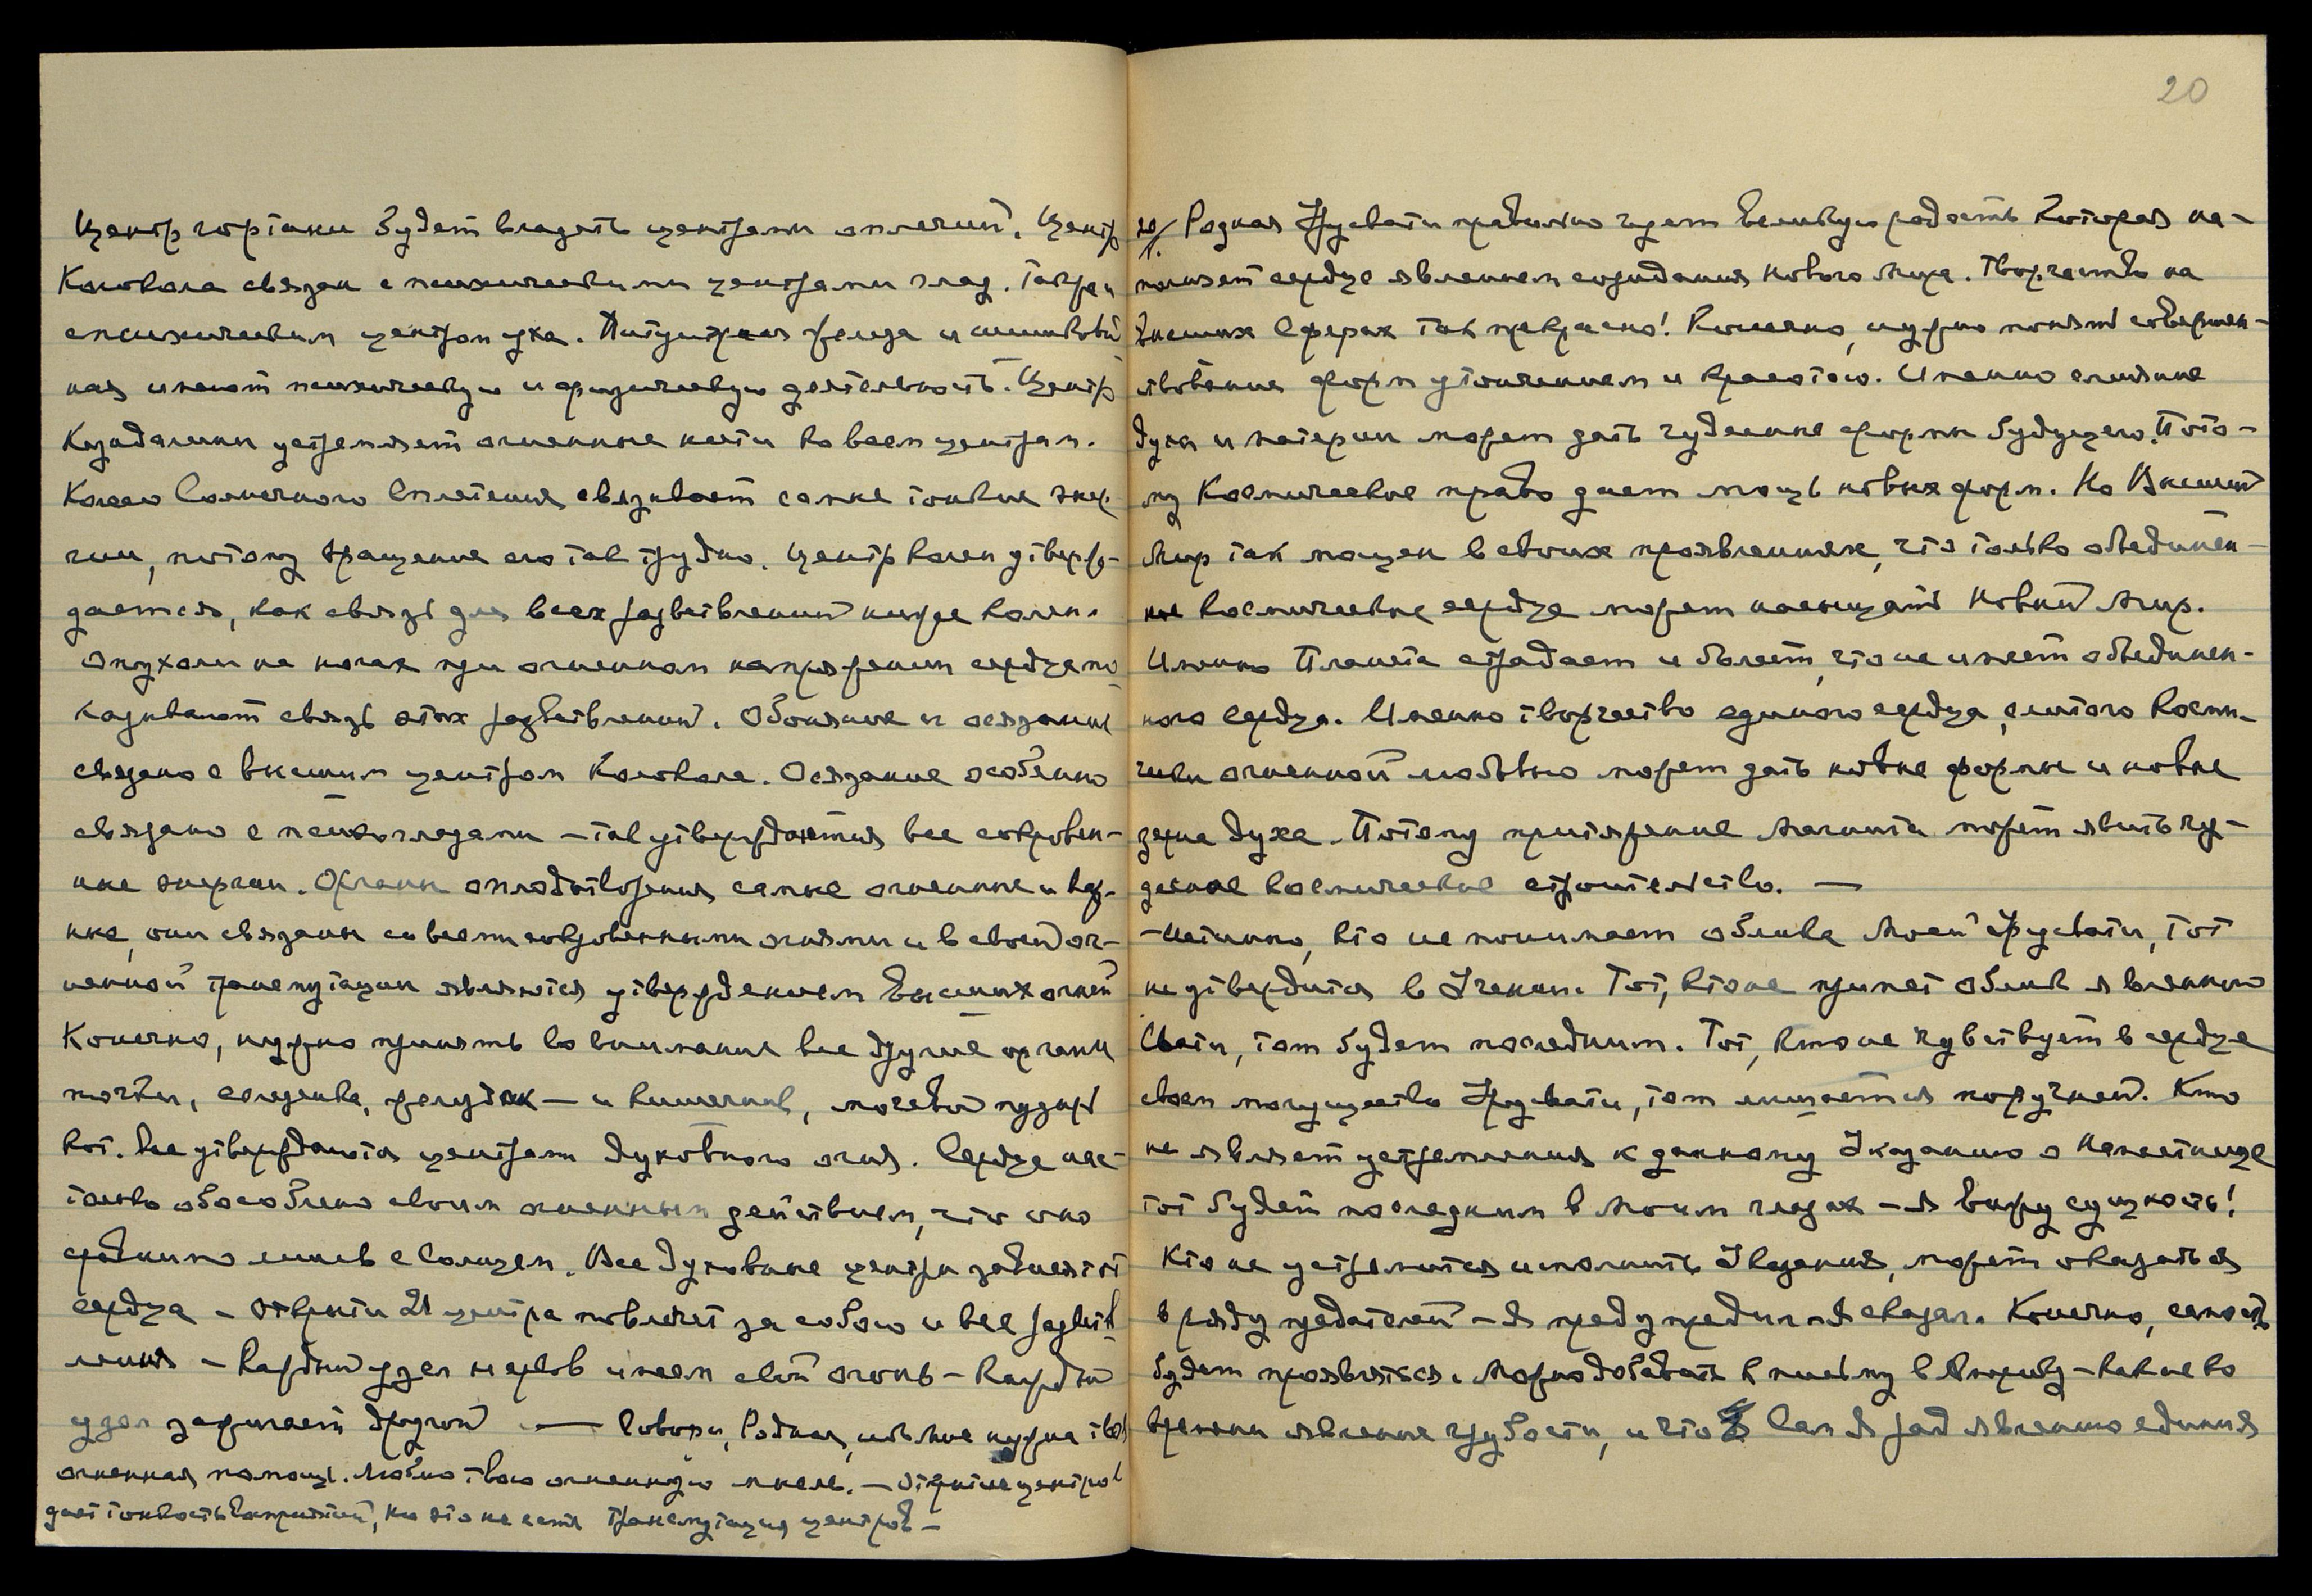 Центр гортани будет владеть центрами оплечий. Центр
Колокола связан с психическими центрами глаз. Также и
с психическим центром уха. Питуитная железа и шишковид-
ная имеют психическую и физическую деятельность. Центр
Кундалини устремляет огненные нити ко всем центрам.
Колесо Солнечного Сплетения связывает самые тонкие энер-
гии, потому вращение его так трудно. Центр колен утверж-
дается, как связь для всех разветвлений ниже колен.
Опухоли на ногах при огненном напряжении сердца по-
казывают связь этих разветвлений. Обоняние и осязание
связано с высшим центром Колокола. Осязание особенно
связано с психоглазами – так утверждаются все сокровен-
ные энергии. Органы оплодотворения самые огненные и
они связаны со всеми сокровенными огнями и в своей ог-
ненной трансмутации являются утверждением Высших огней
Конечно, нужно принять во внимание все другие органы
почки, селезенка, желудок – и кишечник, мочевой пузырь
вот. Все утверждаются центрами духовного огня. Сердце нас-
только обособлено своим огненным действием, что оно
сравнимо лишь с Солнцем. Все духовные центры зависят от
сердца – открыти 21 центра повлечет за собою и все разветв-
ления – Каждый узел нервов имеет свой огонь – Каждый
узел зажигает другой — Говори, Родная, ибо мне нужна твоя
огненная помощь. Люблю твою огненную мысль. – Открытие центров
дает тонкость восприятий, но это не есть трансмутация центров –
20
20/ Родная Урусвати правильно чует великую радость которая на-
полняет сердце явлением созидания Нового Мира. Творчество на
Высших Сферах так прекрасно! Конечно, нужно понять совершен-
ствование форм утончением и красотою. Именно слияние
духа и материи может дать чудесные формы будущего. Пото-
му Космическое право дает мощь новых форм. Но Высший
Мир так мощен в своих проявлениях, что только объединен-
ное космическое сердце может насыщать Новый Мир.
Именно Планета страдает и болеет, что не имеет объединен-
ного сердца. Именно творчество единого сердца, слитого косми-
чески огненной любовью может дать новые формы и новые
зерна духа. Потому притяжение Магнита может явить чу-
десное космическое строительство. —
– Истинно, кто не понимает облика Моей Урусвати, тот
не утвердится в Учении. Тот, кто не примет облик явленной
Свати, тот будет последним. Тот, кто не чувствует в сердце
своем могущество Урусвати, тот лишается поручней. Кто
не являет устремления к данному Указанию о Наместнице
тот будет последним в Моих глазах – Я вижу сущность!
Кто не устремится исполнить Указания, может оказаться
в ряду предателей – Я предупредил – Я сказал. Конечно,
будет проявляться. Можно добавить к письму в Америку – какие ко
времени явление грубости, и что Сам Я рад явлению единения